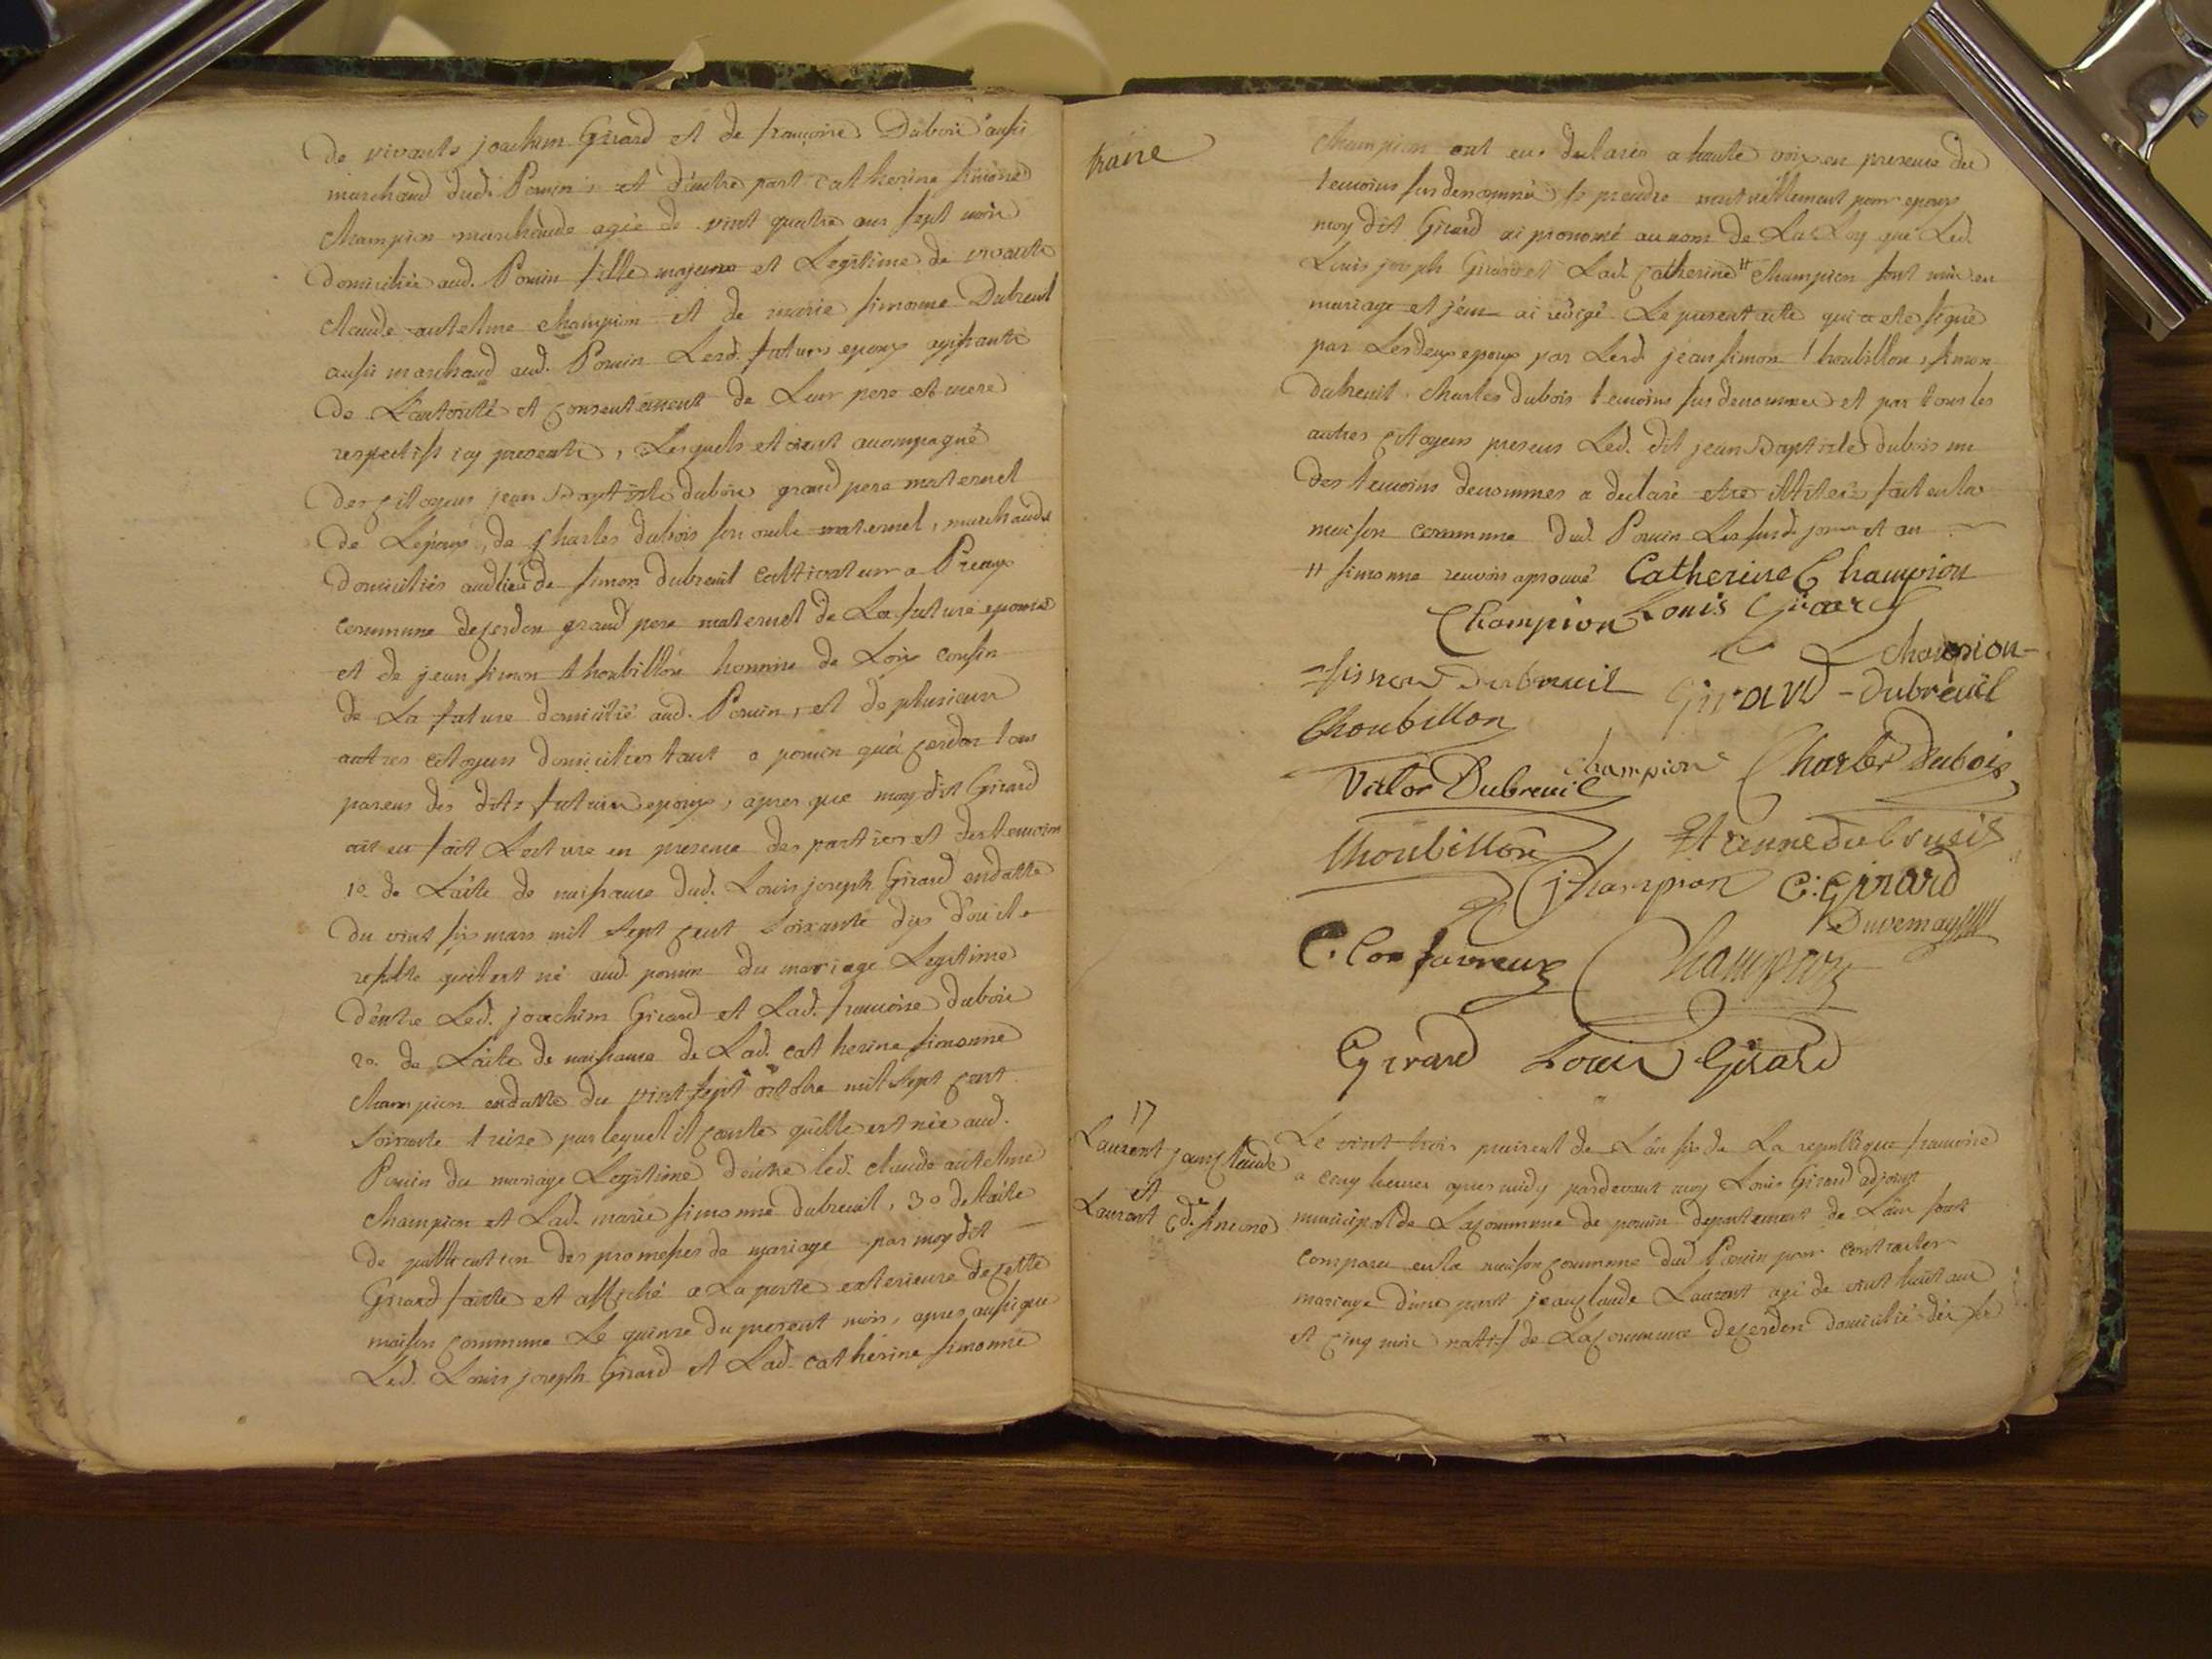 de vivants joachim Girard et de francoise Dubois aussi
marchand dud. Poncin, et d'autre part catherine simone
champion marchande agée de vint quatre ans sept mois
domiciliée aud. Poncin fille majeure et Legitime de vivants
claude antelme champion et de marie simonne Dubreuil
aussi marchand aud. Poncin Lesd. futurs epoux agissants
de L'autorité et consentement de Leur pere et mere
respectifs icy presents, Lesquels etoient acompagné
des citoyens jean Baptiste dubois grand pere maternel
de L'epoux, de Charles dubois son oncle maternel, marchands
domiciliés audlieu de simon dubreuil cultivateur a Preau
commune decerdon grand pere maternel de La future epouse
et de jean simon thoubillon homme de Loix cousin
de La future domicilié aud. Poncin, et de plusieurs
autres citoyens domiciliés tant a poncin qu'a cerdon tous
parens des dits futurs epoux, apres que moy dit Girard
ait eu fait Lecture en presence des parties et des temoins
1º. de L'acte de naissance dud. Louis joseph Girard endatte
du vint six mars mil sept cent soixante dix d'ou il
resulte quil est né aud. poncin du mariage Legitime
d'entre Led. joachim Girard et Lad. francoise dubois
2º. de L'acte de naissance de Lad. catherine simonne
champion endatte du vint sept octobre mil sept cent
soixante treize par lequel il conste qu'elle est née aud.
Poncin du mariage Legitime d'entre led. claude antelme
champion et Lad. marie simonne dubreuil, 3º de L'acte
de publication des promesses de mariage par moy dit
Girard faitte et affiché a La porte exterieure decette
maison commune Le quinze du present mois, apres aussi que
Led. Louis joseph Girard et Lad. catherine simonne
champion ont eus declarés a haute voix en presence des
temoins susdenommés se prendre mutuellement pour epoux
moy dit Girard ai prononcé au nom de La Loy que Led.
Louis joseph Girard et Lad. catherine # champion sont unis en
mariage et j'en ai redigé Le present acte qui a eté signé
par Les deux epoux par Lesd. jean simon thoubillon, simon
dubreuil, charles dubois temoins susdenommés et par tous les
autres citoyens presens Led. dit jean Baptiste dubois un
des temoins denommés a declaré etre illiteré fait en la
maison commune dud. Poncin Les susd. jour et an
# simonne renvoi aprouvé Catherine Champion
Champion Louis Girard
Simon dubreuil Champion
Girard - dubreuil
Thoubillon
champion Charles dubois
Victor Dubreuil
Thoubillon Etienne dubreuil
Champion C. Girard
Duvernay
C. Confavreux Champion
Girard Louis Girard
17
Laurent jean claude
et
Laurent c.de simone
Le vint trois prairial de L'an six de La republique francoise
a cinq heures apres midy pardevant moy Louis Girard adjoint
municipal de Lacommune de poncin departement de L'ain sont
comparu en la maison commune dud Poncin pour contracter
mariage d'une part jean claude Laurent agé de vint huit ans
et cinq mois natif de La commune decerdon domicilié